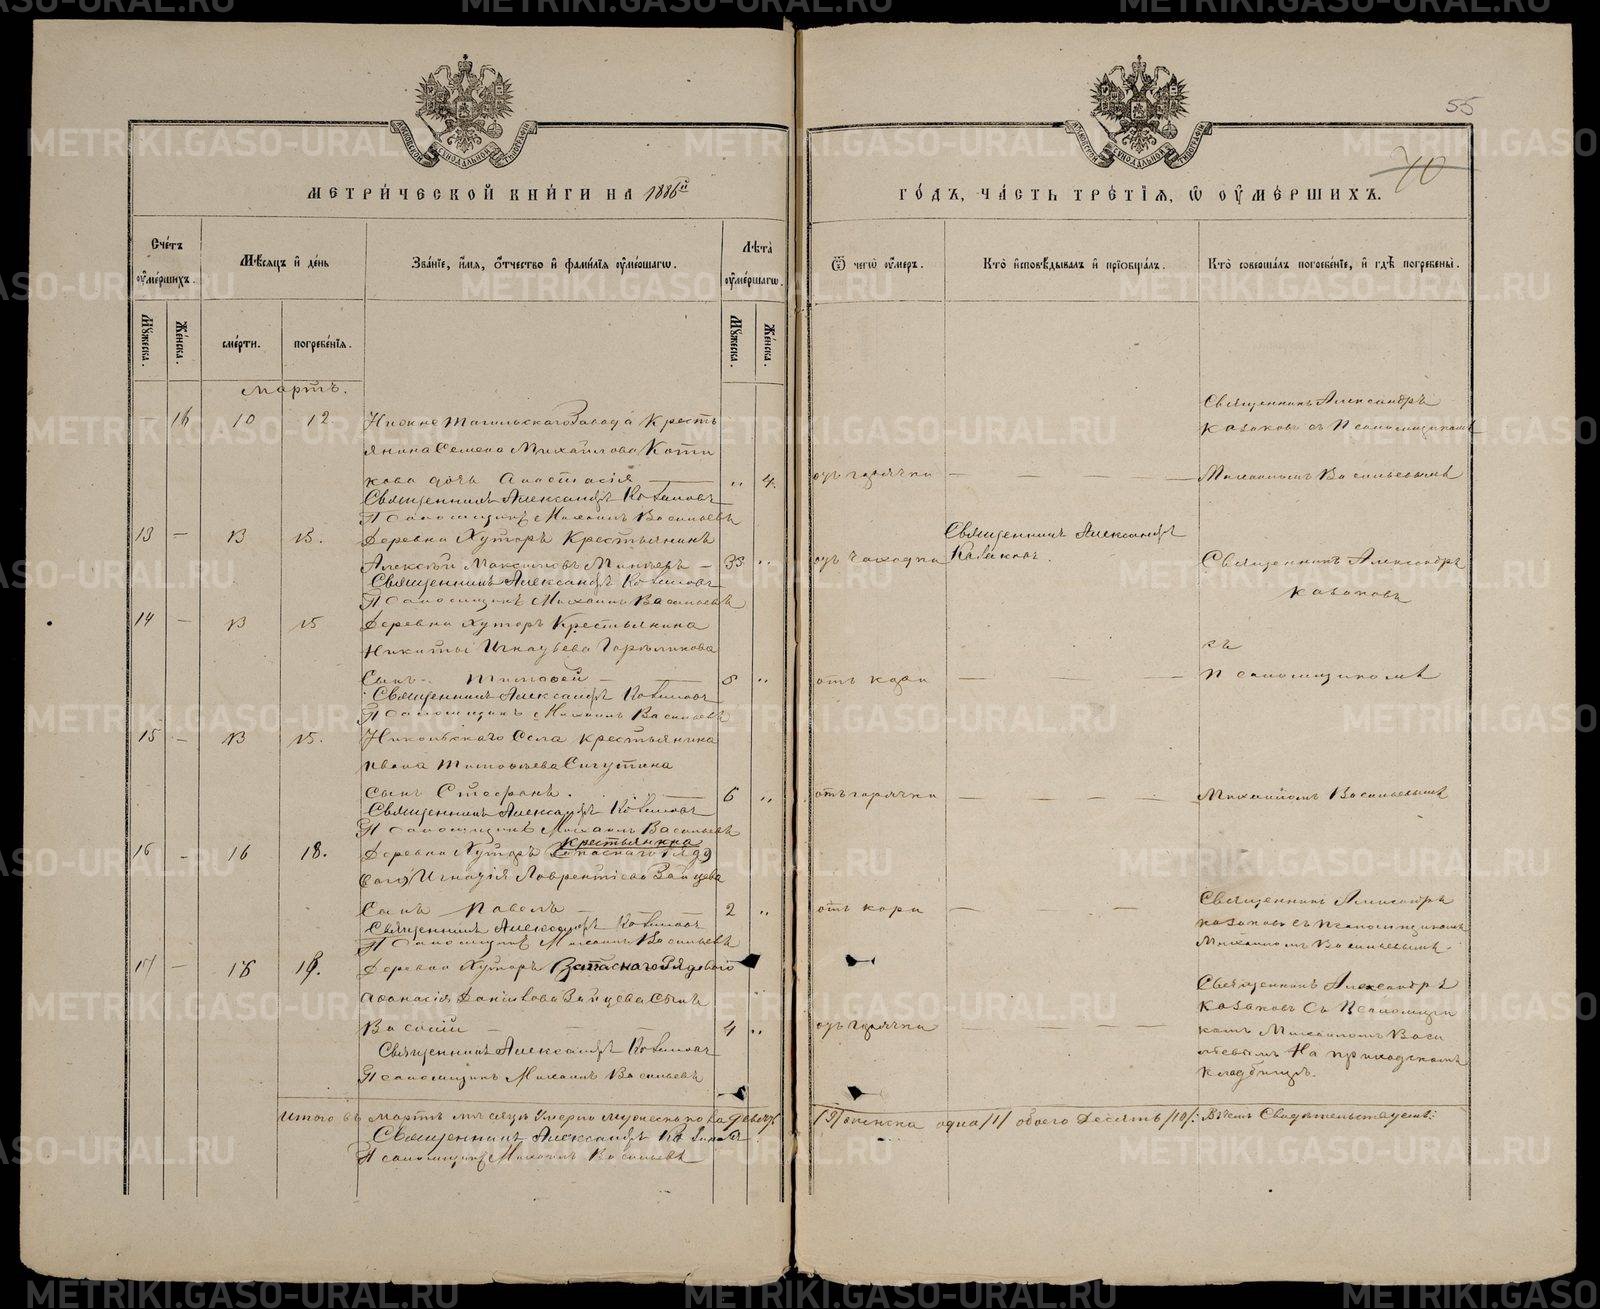 МЕТРИЧЕСКОЙ КНИГИ НА 1886й
ГОДЪ, ЧАСТЬ ТРЕТІЯ, Ѡ ОУМЕРШИХЪ.
55
70
Счетъ оумершихъ.
Мѣсяцъ и день
Званіе, имя, отчество и фамилія оумершагѡ.
Лѣта оумершагѡ.
Ѿ чегѡ оумеръ.
Кто исповѣдывалъ и пріобщалъ.
Кто совершалъ погребеніе, и гдѣ погребены.
Мужеска.
Женска.
смерти.
погребенія.
Мужеска.
Женска.
Мартъ.
— 16 10 12 Нижне Тагильскаго Завода Кресть
янина Семена Михайлова Коти
кова дочь Анастасія — „ 4. отъ горячки — — —
Священникъ Александръ
Казаковъ съ Псаломщикомъ
Михаиломъ Васильевымъ
Священникъ Александръ Казаковъ
Псаломщикъ Михаилъ Васильевъ
13 — 13 15. Деревни Хуторъ Крестьянинъ
Алексѣй Максимовъ — 35 „ отъ чахотки
Священникъ Александръ
Казаковъ
Священникъ Александръ
Казаковъ
Священникъ Александръ Казаковъ
Псаломщикъ Михаилъ Васильевъ
14 — 13 15 Деревни Хуторъ Крестьянина
Никиты Игнатьева
Сынъ Тимофей — „ отъ кори — — —
съ
Псаломщикомъ
Священникъ Александръ Казаковъ
Псаломщикъ Михаилъ Васильевъ
15 — 13 15. Никольскаго Села крестьянина
Ивана Тимофѣева Сигутина
Сынъ Стефанъ. — 6 „ отъ горячки — — —
Михаиломъ Васильевымъ
Священникъ Александръ Казаковъ
Псаломщикъ Михаилъ Васильевъ
16 — 16 18. Деревни Хуторъ крестьянина Запаснаго Ряд
Игнатія Лаврентіева Зайцева
Сынъ Павелъ — 2 „ отъ кори — — —
Священникъ Александръ
Казаковъ съ Псаломщикомъ
Михаиломъ Васильевымъ.
Священникъ Александръ Казаковъ
Псаломщикъ Михаилъ Васильевъ
17 — 16 18. Деревни Хуторъ Запаснаго Рядоваго
Афанасія Данилова Зайцева Сынъ
Василій — — — 4 „ отъ горячки — — —
Священникъ Александръ
Казаковъ Съ Псаломщи
комъ Михаиломъ Васи
льевымъ На приходскомъ
кладбищѣ.
Священникъ Александръ Казаковъ
Псаломщикъ Михаилъ Васильевъ
Итого въ Мартѣ мѣсяцѣ Умерло мужеска пола девять /9/ женска одна /1/ обоего Десять /10/: В чемъ Свидѣтельствуемъ:
Священникъ Александръ Казаковъ
Псаломщикъ Михаилъ Васильевъ
METRIKI.GASO-URAL.RU